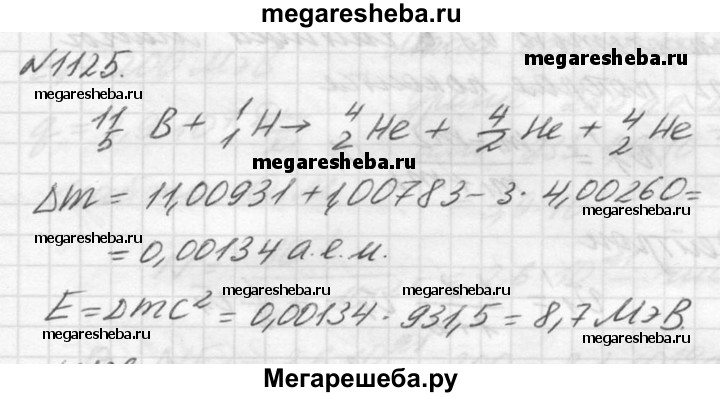 megaresheba.ru
N1125.
megaresheba.ru
megaresheba.ru
¹¹₅B + ¹₁H → ⁴₂He + ⁴₂He + ⁴₂He
megaresheba.ru
megaresheba.ru
Δm = 11,00931 + 1,00783 - 3 · 4,00260 =
megaresheba.ru
megaresheba.ru
= 0,00134 а.е.м.
megaresheba.ru
E = Δmc² = 0,00134 · 931,5 = 8,7 МэВ.
megaresheba.ru
megaresheba.ru
Мегарешеба.ру